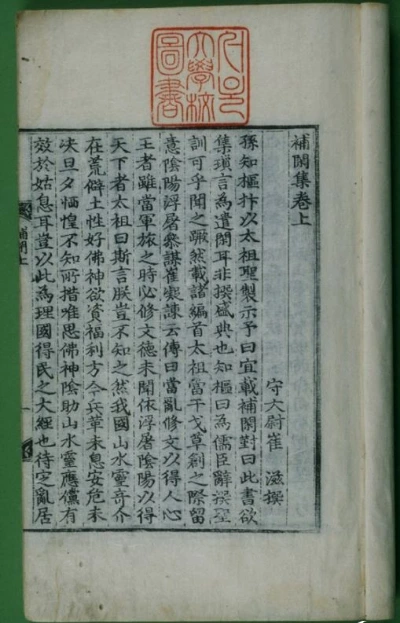 大學校
圖書
補閑集卷上
守太尉崔 滋撰
孫知樞抃以太祖聖製示予曰宜載補閑對曰此書欲
集瑣言為遣閑耳非撰盛典也知樞曰為儒臣辭撰聖
訓可乎聞之蹶然載諸編首太祖當干戈草創之際留
意陰陽浮屠叅謀崔凝諫云傳曰當亂修文以得人心
王者雖當軍旅之時必修文德未聞依浮屠陰陽以得
天下者太祖曰斯言朕豈不知之然我國山水靈奇介
在荒僻土性好佛神欲資福利方今兵革未息安危未
决旦夕恓惶不知所措唯思佛神陰助山水靈應儻有
效於姑息耳豈以此為理國得民之大經也待定亂居